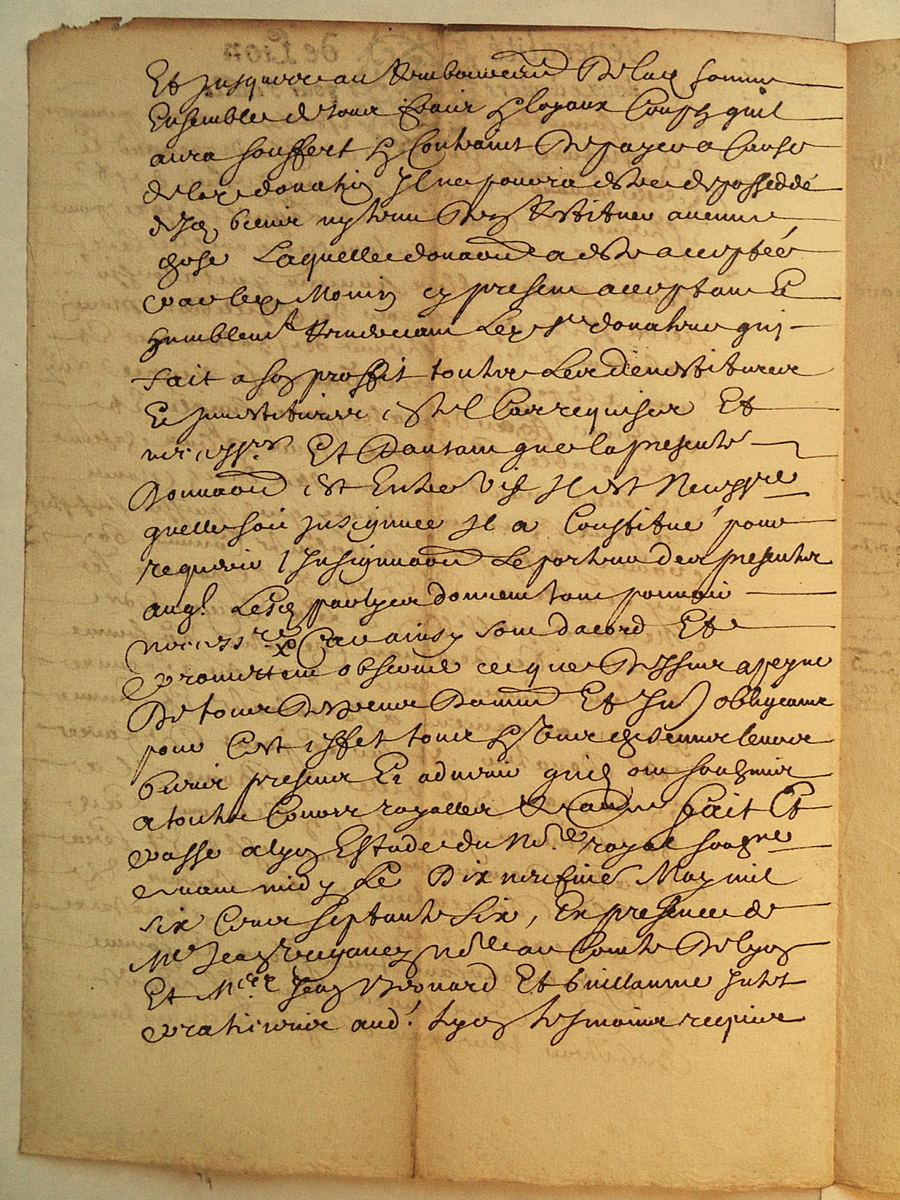 Et jusques au Remboursem.t De lad somme
Ensemble de tous frais & loyaux Coustz quil
aura souffert & Contraint De payer a Cause
de lad donation Il ne pourra estre depossedé
desd biens ny tenu Des Restituer aucune
chose Laquelle donaon a este acceptée
par led Monin cy present acceptant Et
humblem.t Remerciant Led s.r donateur qui
fait a son proffit toutes Les
Et sur ce requises Et
necess.res Et Dautant que la presente
Donnaon est Entre Vifs Il est Necess.re
quelle soit Insignuée Il a Constitué pour
requerir l Insignuaon Le porteur des presentes
auq.l Lesd partyes donnent tout pouvoir
necess.re Car ainsy sont dacord Et
promettent observer ce que Dessus a peyne
De tous Despens Dam Et Int obligeants
pour C est effet tous & Uns chescuns leurs
biens presents Et advenir quils ont soubzmis
a toutes Cours royalles & au.es fait Et
passé a Lyon Estude du No.re royal soubzne
avant midy Le Dix neufine May mil
six Cents septante six, En presence de
M.e Jean no.re au Comte De Lyon
Et M.res Jean Et Guillaume
praticiens aud.t Lyon tesmoins requis